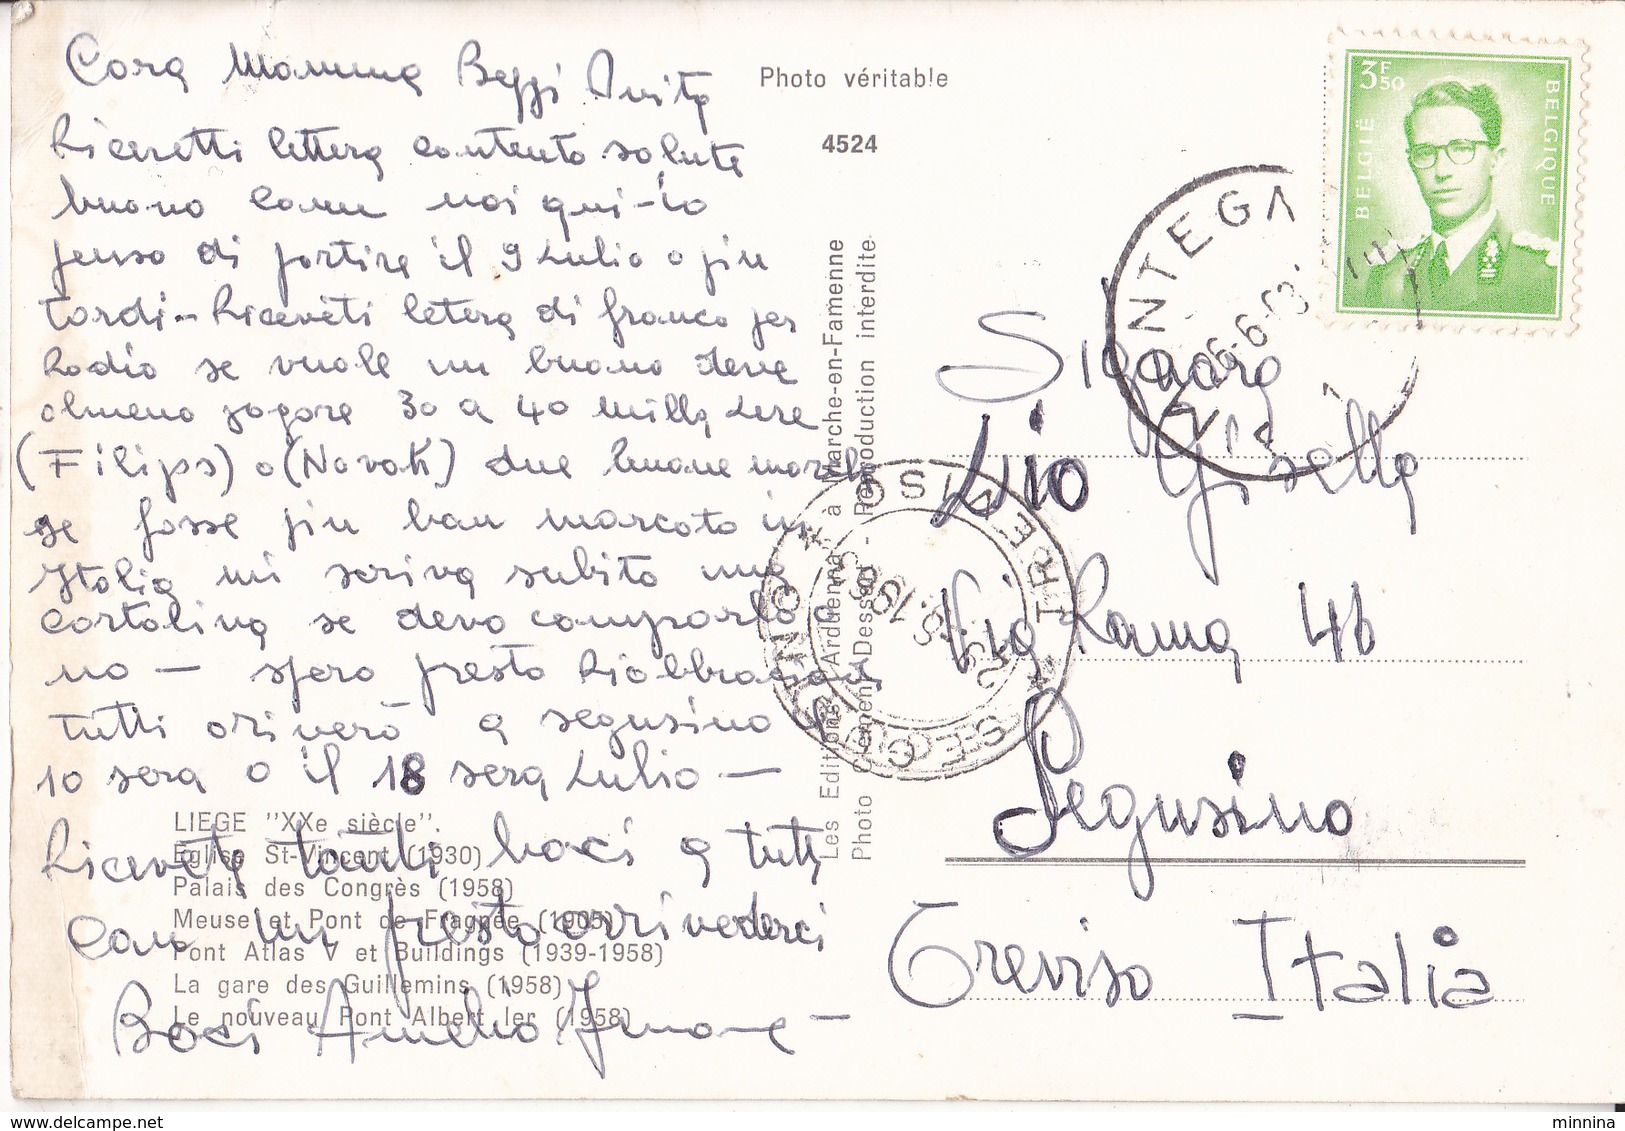 Cara Mamma Beppi Anita
Riceretti lettera contento salute
buono come noi qui - io
penso di partire il 9 Lulio o piu
tardi - Riceveti letera di franco per
Radio se vuole un buono deve
almeno pagare 30 a 40 milla Lere
(Filips) o (Novak) due buone marche
se fosse piu bon marcato in
Italia mi scriva subito una
cartolina se devo comparla o
no - spero presto Riabbraciarvi
tutti ariverò a segusino il
10 sera o il 18 sera Lulio -
Riceveta tanti baci a tutti
con un presto arrivederci
Baci Amelio Irmone -
LIEGE "XXe siècle".
Eglise St-Vincent (1930)
Palais des Congrès (1958)
Meuse et Pont de Fragnée (1905)
Pont Atlas V et Buildings (1939-1958)
La gare des Guillemins (1958)
Le nouveau Pont Albert Ier (1958)
Photo véritable
4524
Les Editions Arduenna à Marche-en-Famenne
Photo Clément Dessart - Reproduction interdite
3F50
BELGIË
BELGIQUE
MONTEGNÉE
6-6-63
1
SEGUSINO * TREVISO *
Signora
Lio Gisella
Via Roma 46
Segusino
Treviso Italia
minnina